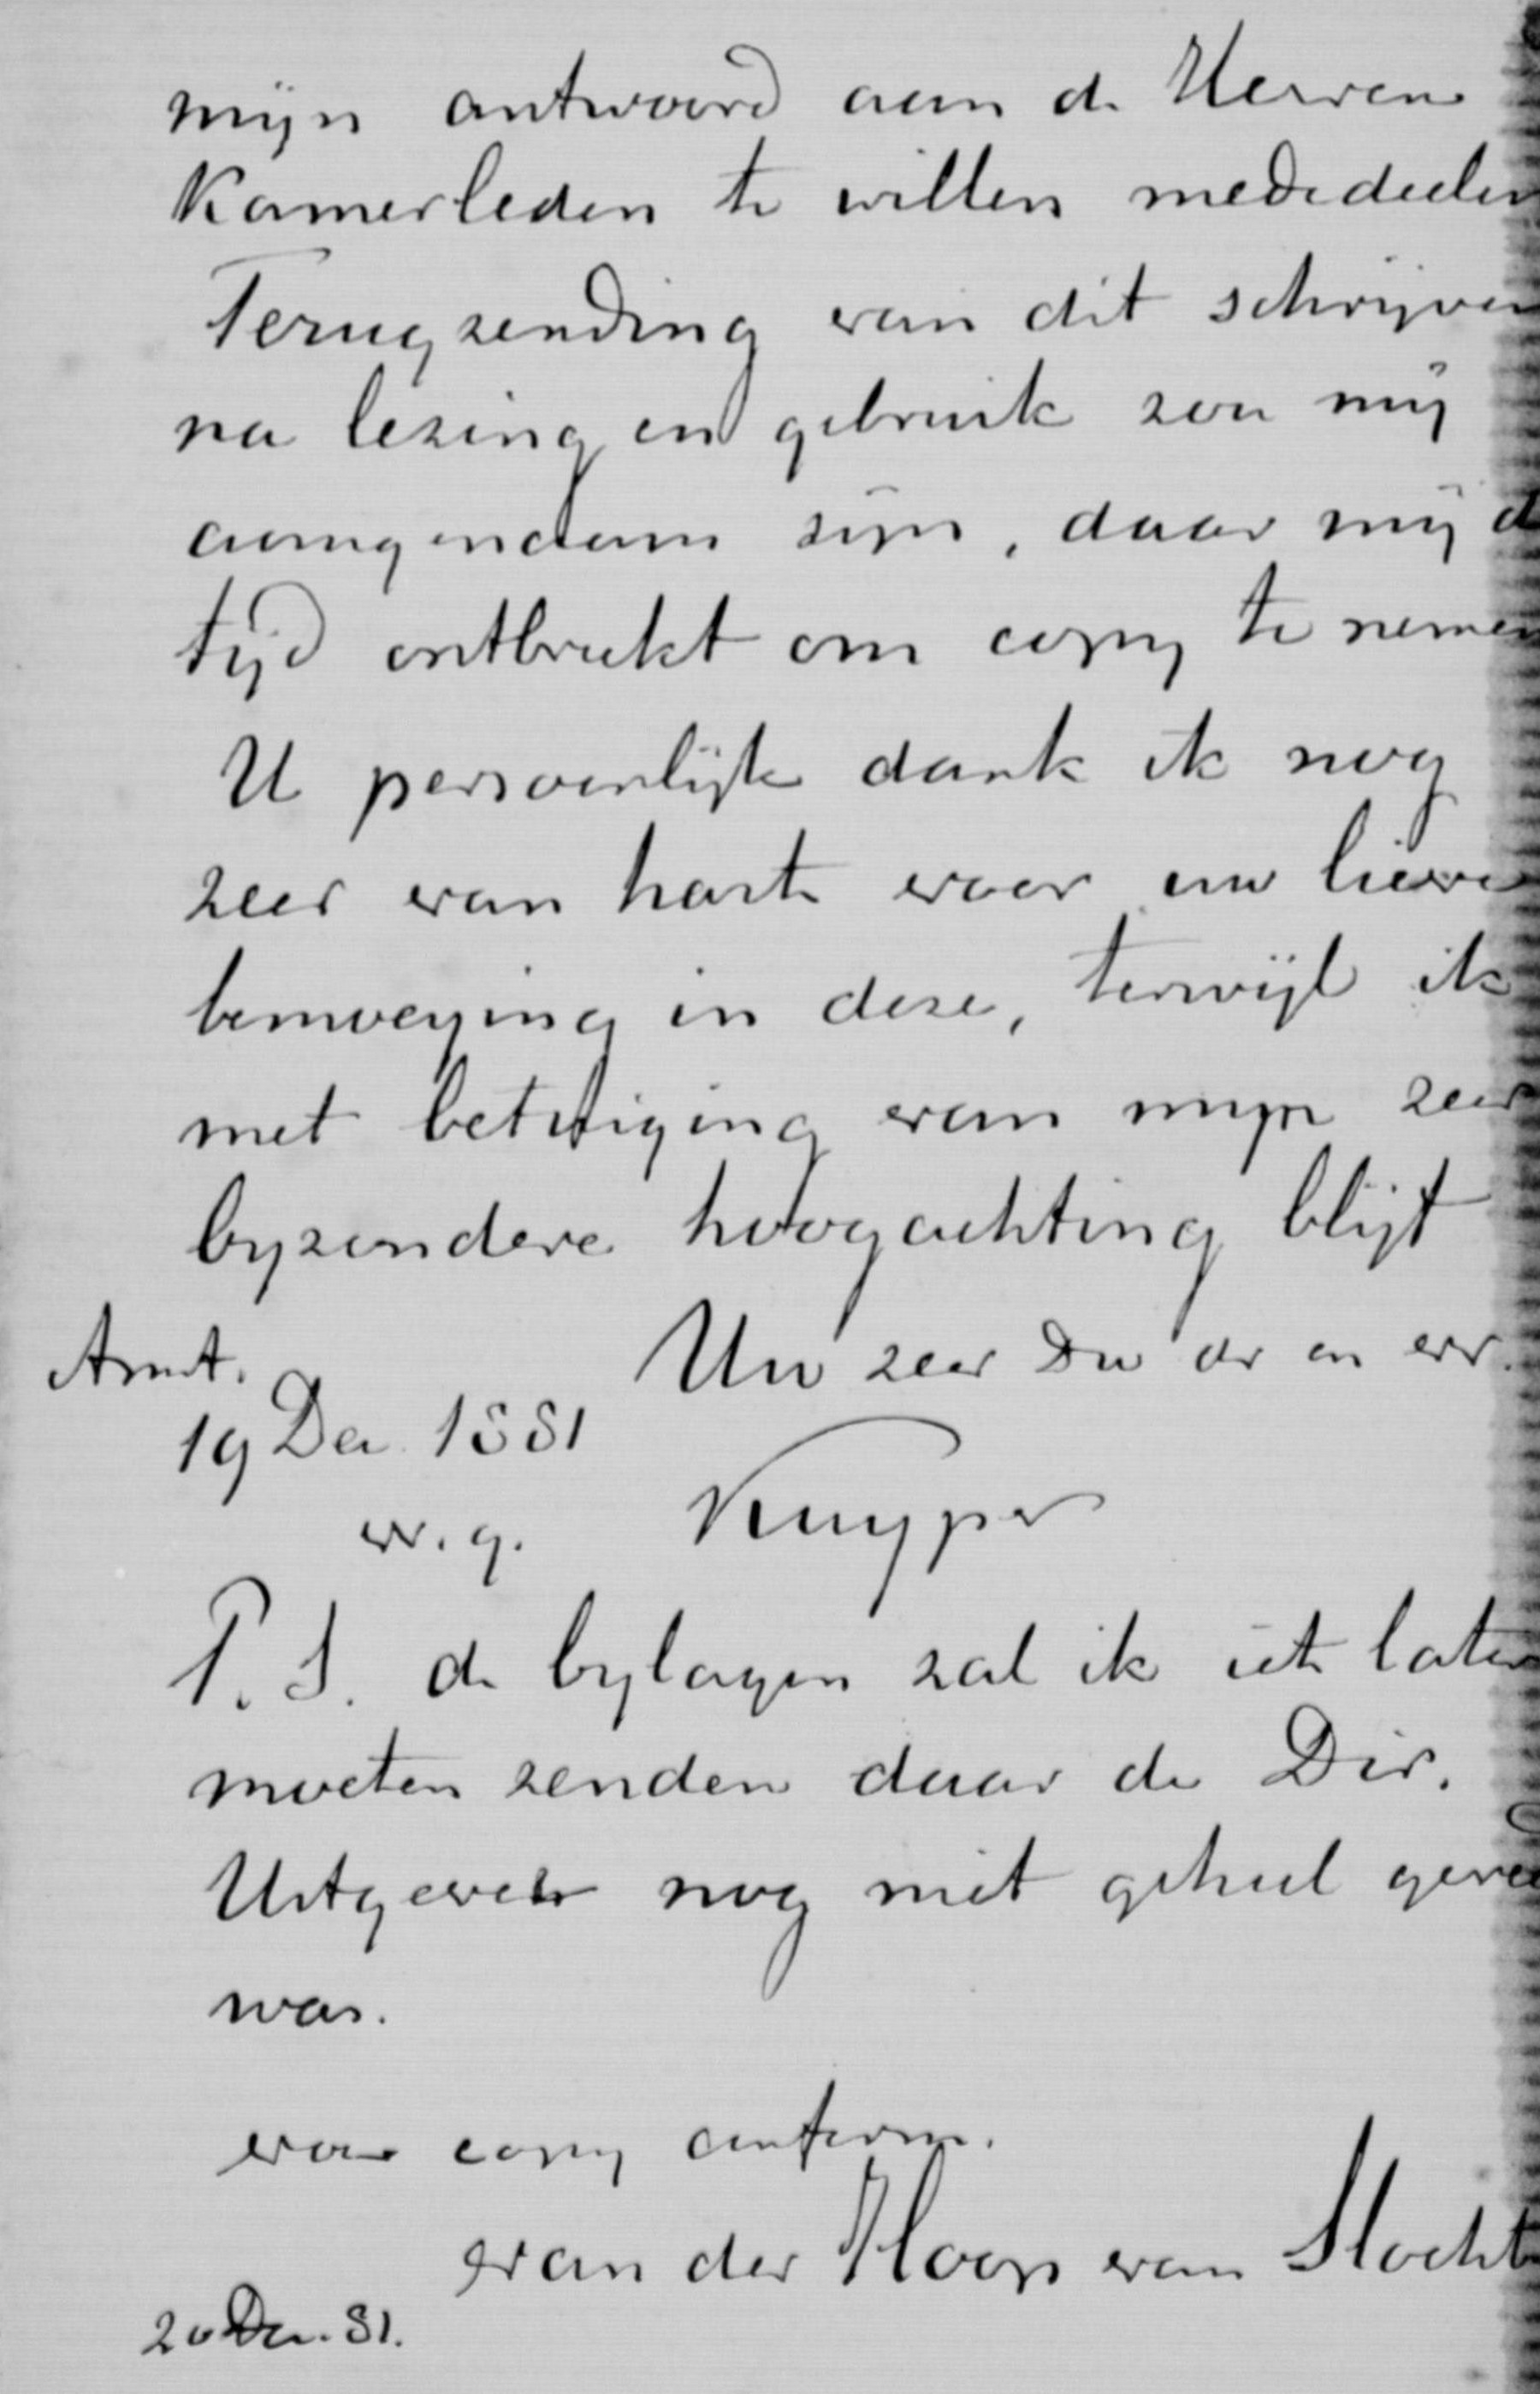 mijn antwoord aan de Heeren
Kamerleden te willen mededeelen
Terugzending van dit schrijven
na lezing en gebruik zou mij
aangenaam zijn, daar mij d
tijd ontbreekt om copij te nemen
U persoonlijk dank ik nog
zeer van harte voor uw lieve
bemoeying in deze, terwijl ik
met betuiging van mijn zeer
byzondere hoogachting blijf
Amst. Uw zeer Dw dr en vr.
19 Dec 1881
w.g. Kuyper
P.S. de bylagen zal ik iets later
moeten zenden daar de Dir.
Uitgever nog niet geheel geree
was.
voor copij conform.
van der Hoop van Slocht
20 Dec. 81.